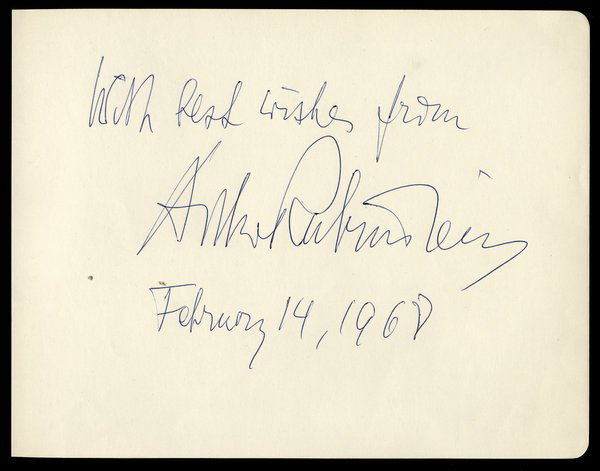 With best wishes from
Arthur Rubinstein
February 14, 1968